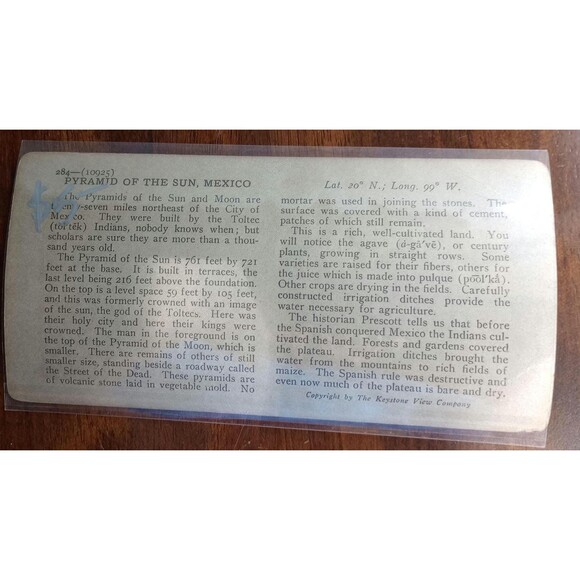 284—(10925)
PYRAMID OF THE SUN, MEXICO
The Pyramids of the Sun and Moon are
twenty-seven miles northeast of the City of
Mexico. They were built by the Toltec
(tŏl'tĕk) Indians, nobody knows when; but
scholars are sure they are more than a thou-
sand years old.
The Pyramid of the Sun is 761 feet by 721
feet at the base. It is built in terraces, the
last level being 216 feet above the foundation.
On the top is a level space 59 feet by 105 feet,
and this was formerly crowned with an image
of the sun, the god of the Toltecs. Here was
their holy city and here their kings were
crowned. The man in the foreground is on
the top of the Pyramid of the Moon, which is
smaller. There are remains of others of still
smaller size, standing beside a roadway called
the Street of the Dead. These pyramids are
of volcanic stone laid in vegetable mold. No
Lat. 20° N.; Long. 99° W.
mortar was used in joining the stones. The
surface was covered with a kind of cement,
patches of which still remain.
This is a rich, well-cultivated land. You
will notice the agave (ȧ-gā'vē), or century
plants, growing in straight rows. Some
varieties are raised for their fibers, others for
the juice which is made into pulque (po͞ol'kā).
Other crops are drying in the fields. Carefully
constructed irrigation ditches provide the
water necessary for agriculture.
The historian Prescott tells us that before
the Spanish conquered Mexico the Indians cul-
tivated the land. Forests and gardens covered
the plateau. Irrigation ditches brought the
water from the mountains to rich fields of
maize. The Spanish rule was destructive and
even now much of the plateau is bare and dry.
Copyright by The Keystone View Company